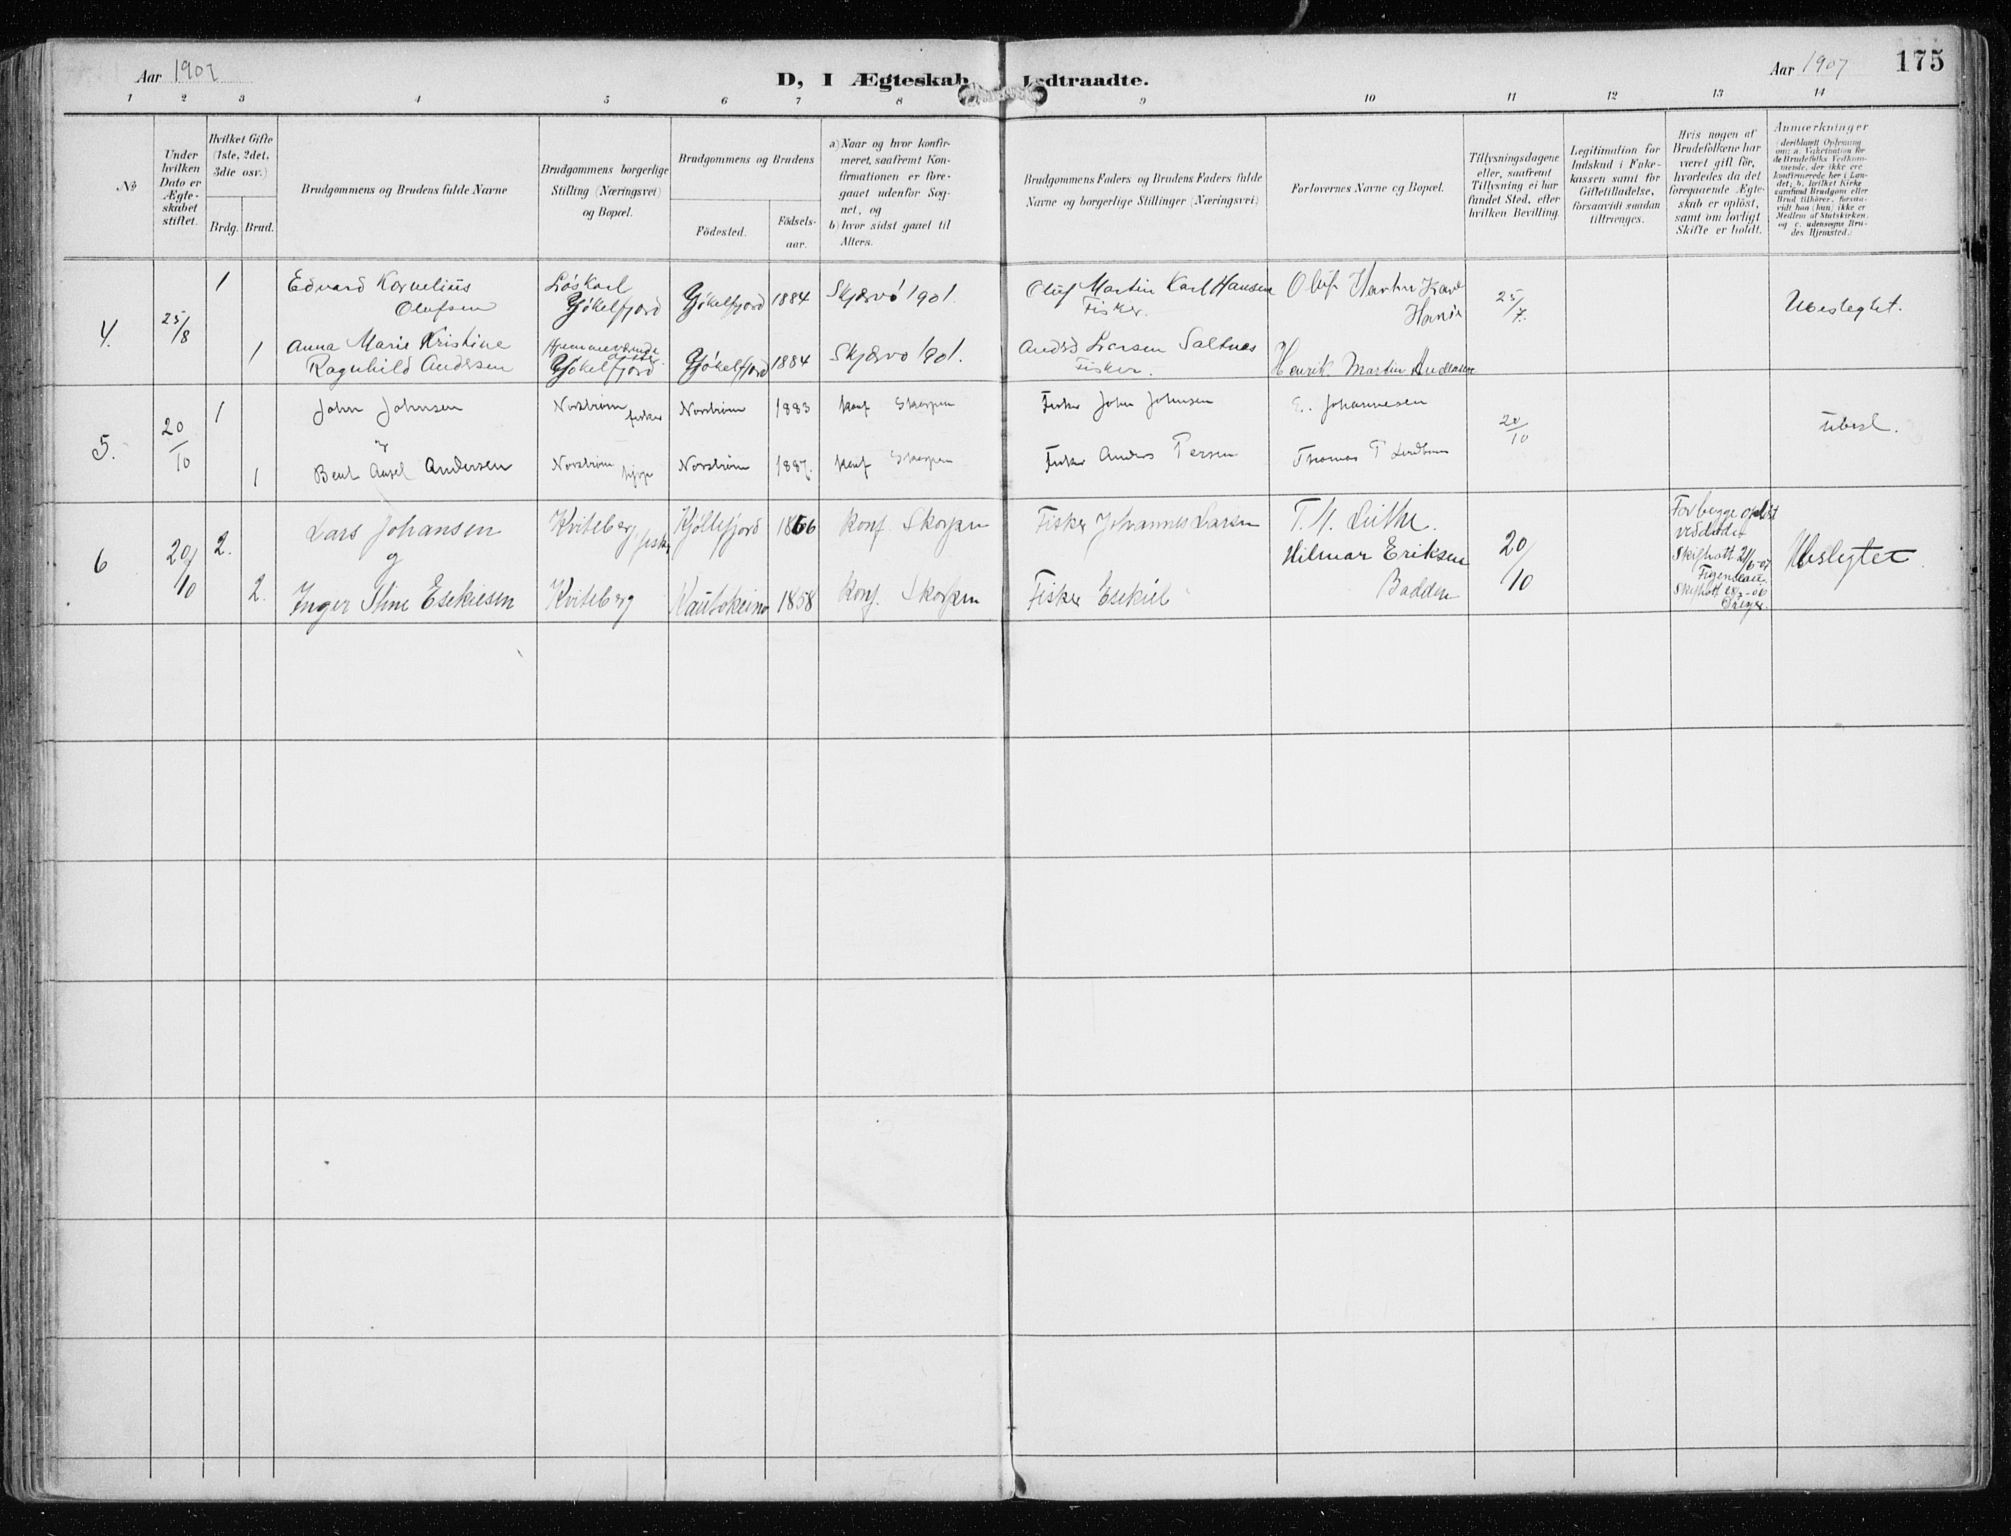 Aar 1907
D, I Ægteskab Indtraadte.
Aar 1907
175
1 2 3 4 5 6 7 8 9 10 11 12 13 14
No
Under hvilken Dato er Ægteskabet stiftet.
Hvilket Gifte (1ste, 2det, 3die osv.)
Brdg. Brud.
Brudgommens og Brudens fulde Navne
Brudgommens borgerlige Stilling (Næringsvei) og Bopæl.
Brudgommens og Brudens
Födested.
Födselsaar.
a) Naar og hvor konfirmeret, saafremt Konfirmationen er foregaaet udenfor Sognet, og
b) hvor sidst gaaet til Alters.
Brudgommens Faders og Brudens Faders fulde Navne og borgerlige Stillinger (Næringsvei)
Forlovernes Navne og Bopæl.
Tillysningsdagene eller, saafremt Tillysning ei har fundet Sted, efter hvilken Bevilling.
Legitimation for Indskud i Enkekassen samt for Giftetilladelse, forsaavidt saadan tiltrænges.
Hvis nogen af Brudefolkene har været gift för, hvorledes da det foregaaende Ægteskab er oplöst, samt om lovligt Skifte er holdt.
Anmærkninger (deriblandt Oplysning om: a. Vaksination for de Brudefolks Vedkommende, der ikke ere konfirmerede her i Landet; b. hvilket Kirkesamfund Brudgom eller Brud tilhörer, forsaavidt han (hun) ikke er Medlem af Statskirken, og c. udensogns Brudes Hjemsted.)
4. 25/8 1 Edvard Kornelius Olufsen Löskarl Jökelfjord Jökelfjord 1884 Skjærvö 1901. Oluf Martin Karl Hansen Fisker. Oluf Martin Karl Hansen 25/7. Ubeslegtet.
1 Anna Marie Kristine Ragnhild Andersen Hjemmeværende datter Jökelfjord Jökelfjord 1884 Skjærvö 1901. Anders Larsen Saltnes Fisker. Henrik Martin Andersen
5. 20/10 1 John Johnsen Norström fisker Norström 1883 konf Skorpen Fisker John Johnsen E. Johannesen 20/10 ubesl.
og
1 Berit Andersen Norström Norström 1887. konf Skorpen Fisker Anders Persen Thomas P
6 20/10 2. Lars Johansen Kviteberg fisker Kjöllefjord 1866 konf. Skorpen Fisker Johannes Larsen 20/10 For begge oplöst ved död Ubeslegtet
og Hilmar Eriksen Badderen Skifteatt
2. Inger Esekiesen Kviteberg Kautokeino 1858 konf. Skorpen Fisker Esekiel Skifteatt